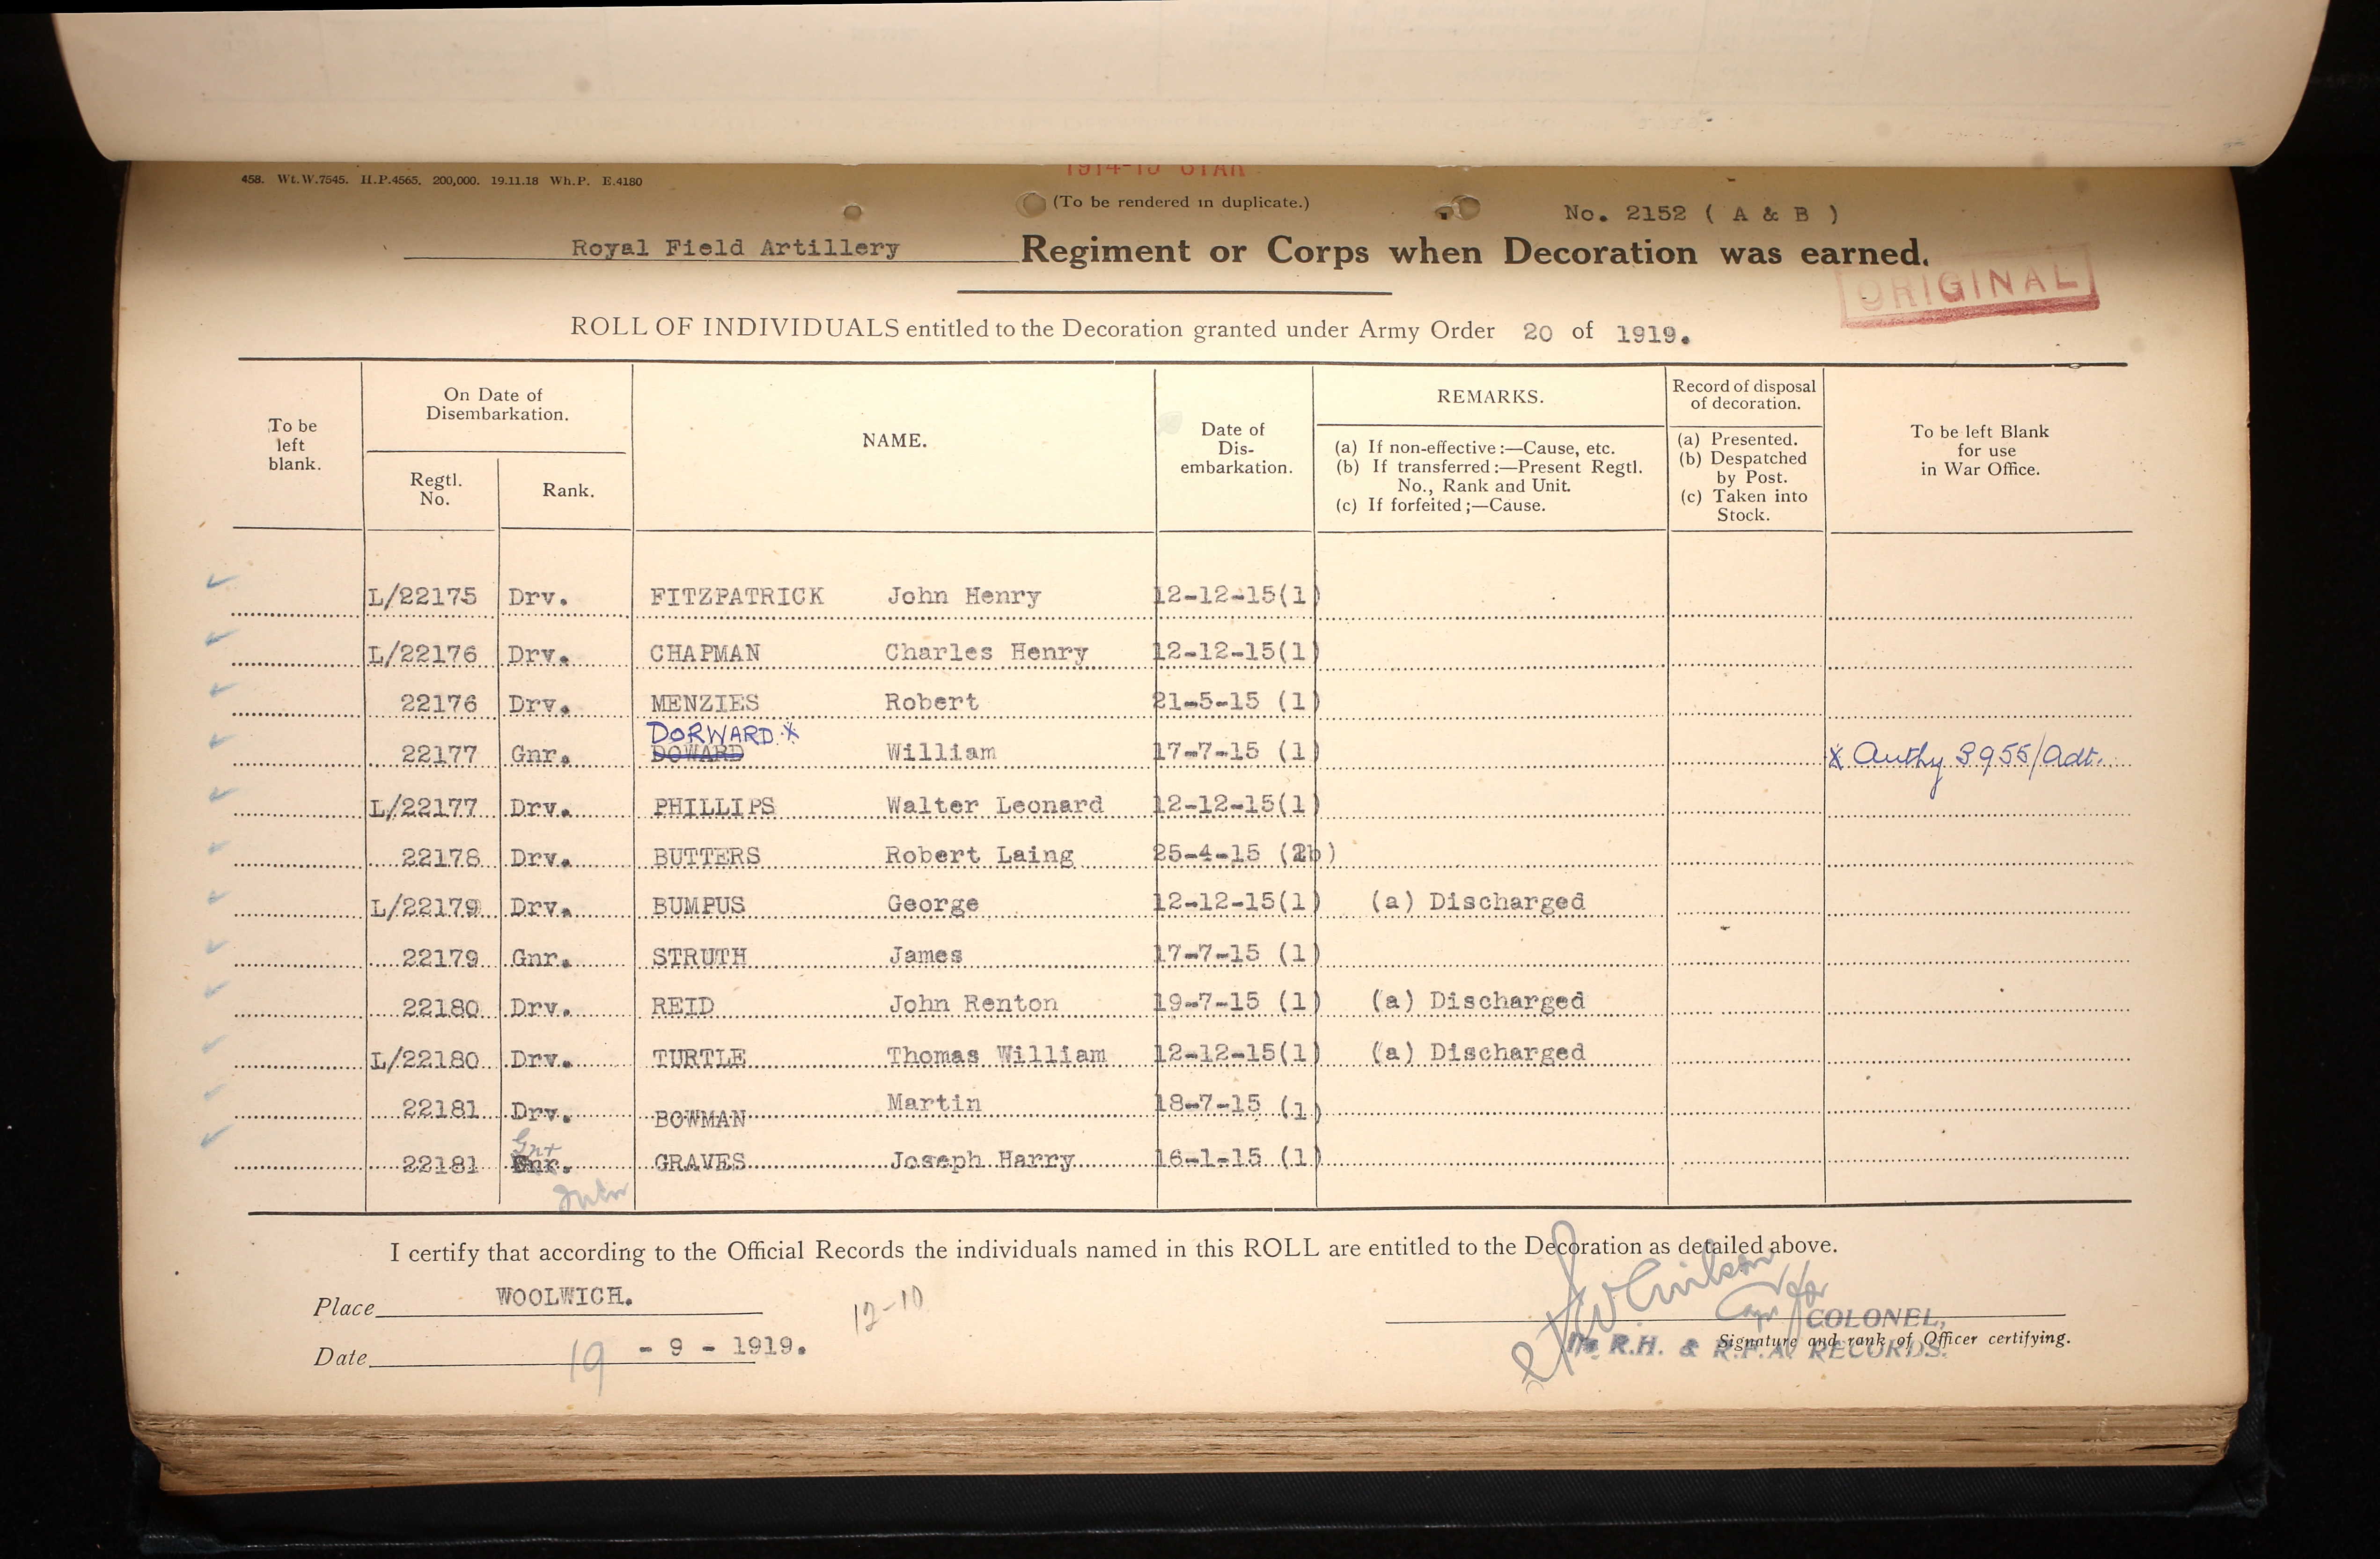 458. Wt.W.7545. H.P.4565. 200,000. 19.11.18 Wh.P. E.4180
1914-15 STAR
(To be rendered in duplicate.)
No. 2152 ( A & B )
Royal Field Artillery Regiment or Corps when Decoration was earned.
ORIGINAL
ROLL OF INDIVIDUALS entitled to the Decoration granted under Army Order 20 of 1919.
To be left blank.
On Date of Disembarkation.
Regtl. No.
Rank.
NAME.
Date of Dis-embarkation.
REMARKS.
(a) If non-effective:—Cause, etc.
(b) If transferred:—Present Regtl. No., Rank and Unit.
(c) If forfeited;—Cause.
Record of disposal of decoration.
(a) Presented.
(b) Despatched by Post.
(c) Taken into Stock.
To be left Blank for use in War Office.
L/22175 Drv. FITZPATRICK John Henry 12-12-15(1)
L/22176 Drv. CHAPMAN Charles Henry 12-12-15(1)
22176 Drv. MENZIES Robert 21-5-15 (1)
DORWARD X
22177 Gnr. DOWARD William 17-7-15 (1) X Authy 3955/Adt.
L/22177 Drv. PHILLIPS Walter Leonard 12-12-15(1)
22178 Drv. BUTTERS Robert Laing 25-4-15 (2b)
L/22179 Drv. BUMPUS George 12-12-15(1) (a) Discharged
22179 Gnr. STRUTH James 17-7-15 (1)
22180 Drv. REID John Renton 19-7-15 (1) (a) Discharged
L/22180 Drv. TURTLE Thomas William 12-12-15(1) (a) Discharged
22181 Drv. BOWMAN Martin 18-7-15 (1)
Gnr
22181 Gnr. GRAVES Joseph Harry 16-1-15 (1)
I certify that according to the Official Records the individuals named in this ROLL are entitled to the Decoration as detailed above.
Place WOOLWICH.
12-10
Capt for COLONEL,
Date 19 - 9 - 1919.
Signature and rank of Officer certifying.
R.H. & R.F.A. RECORDS.